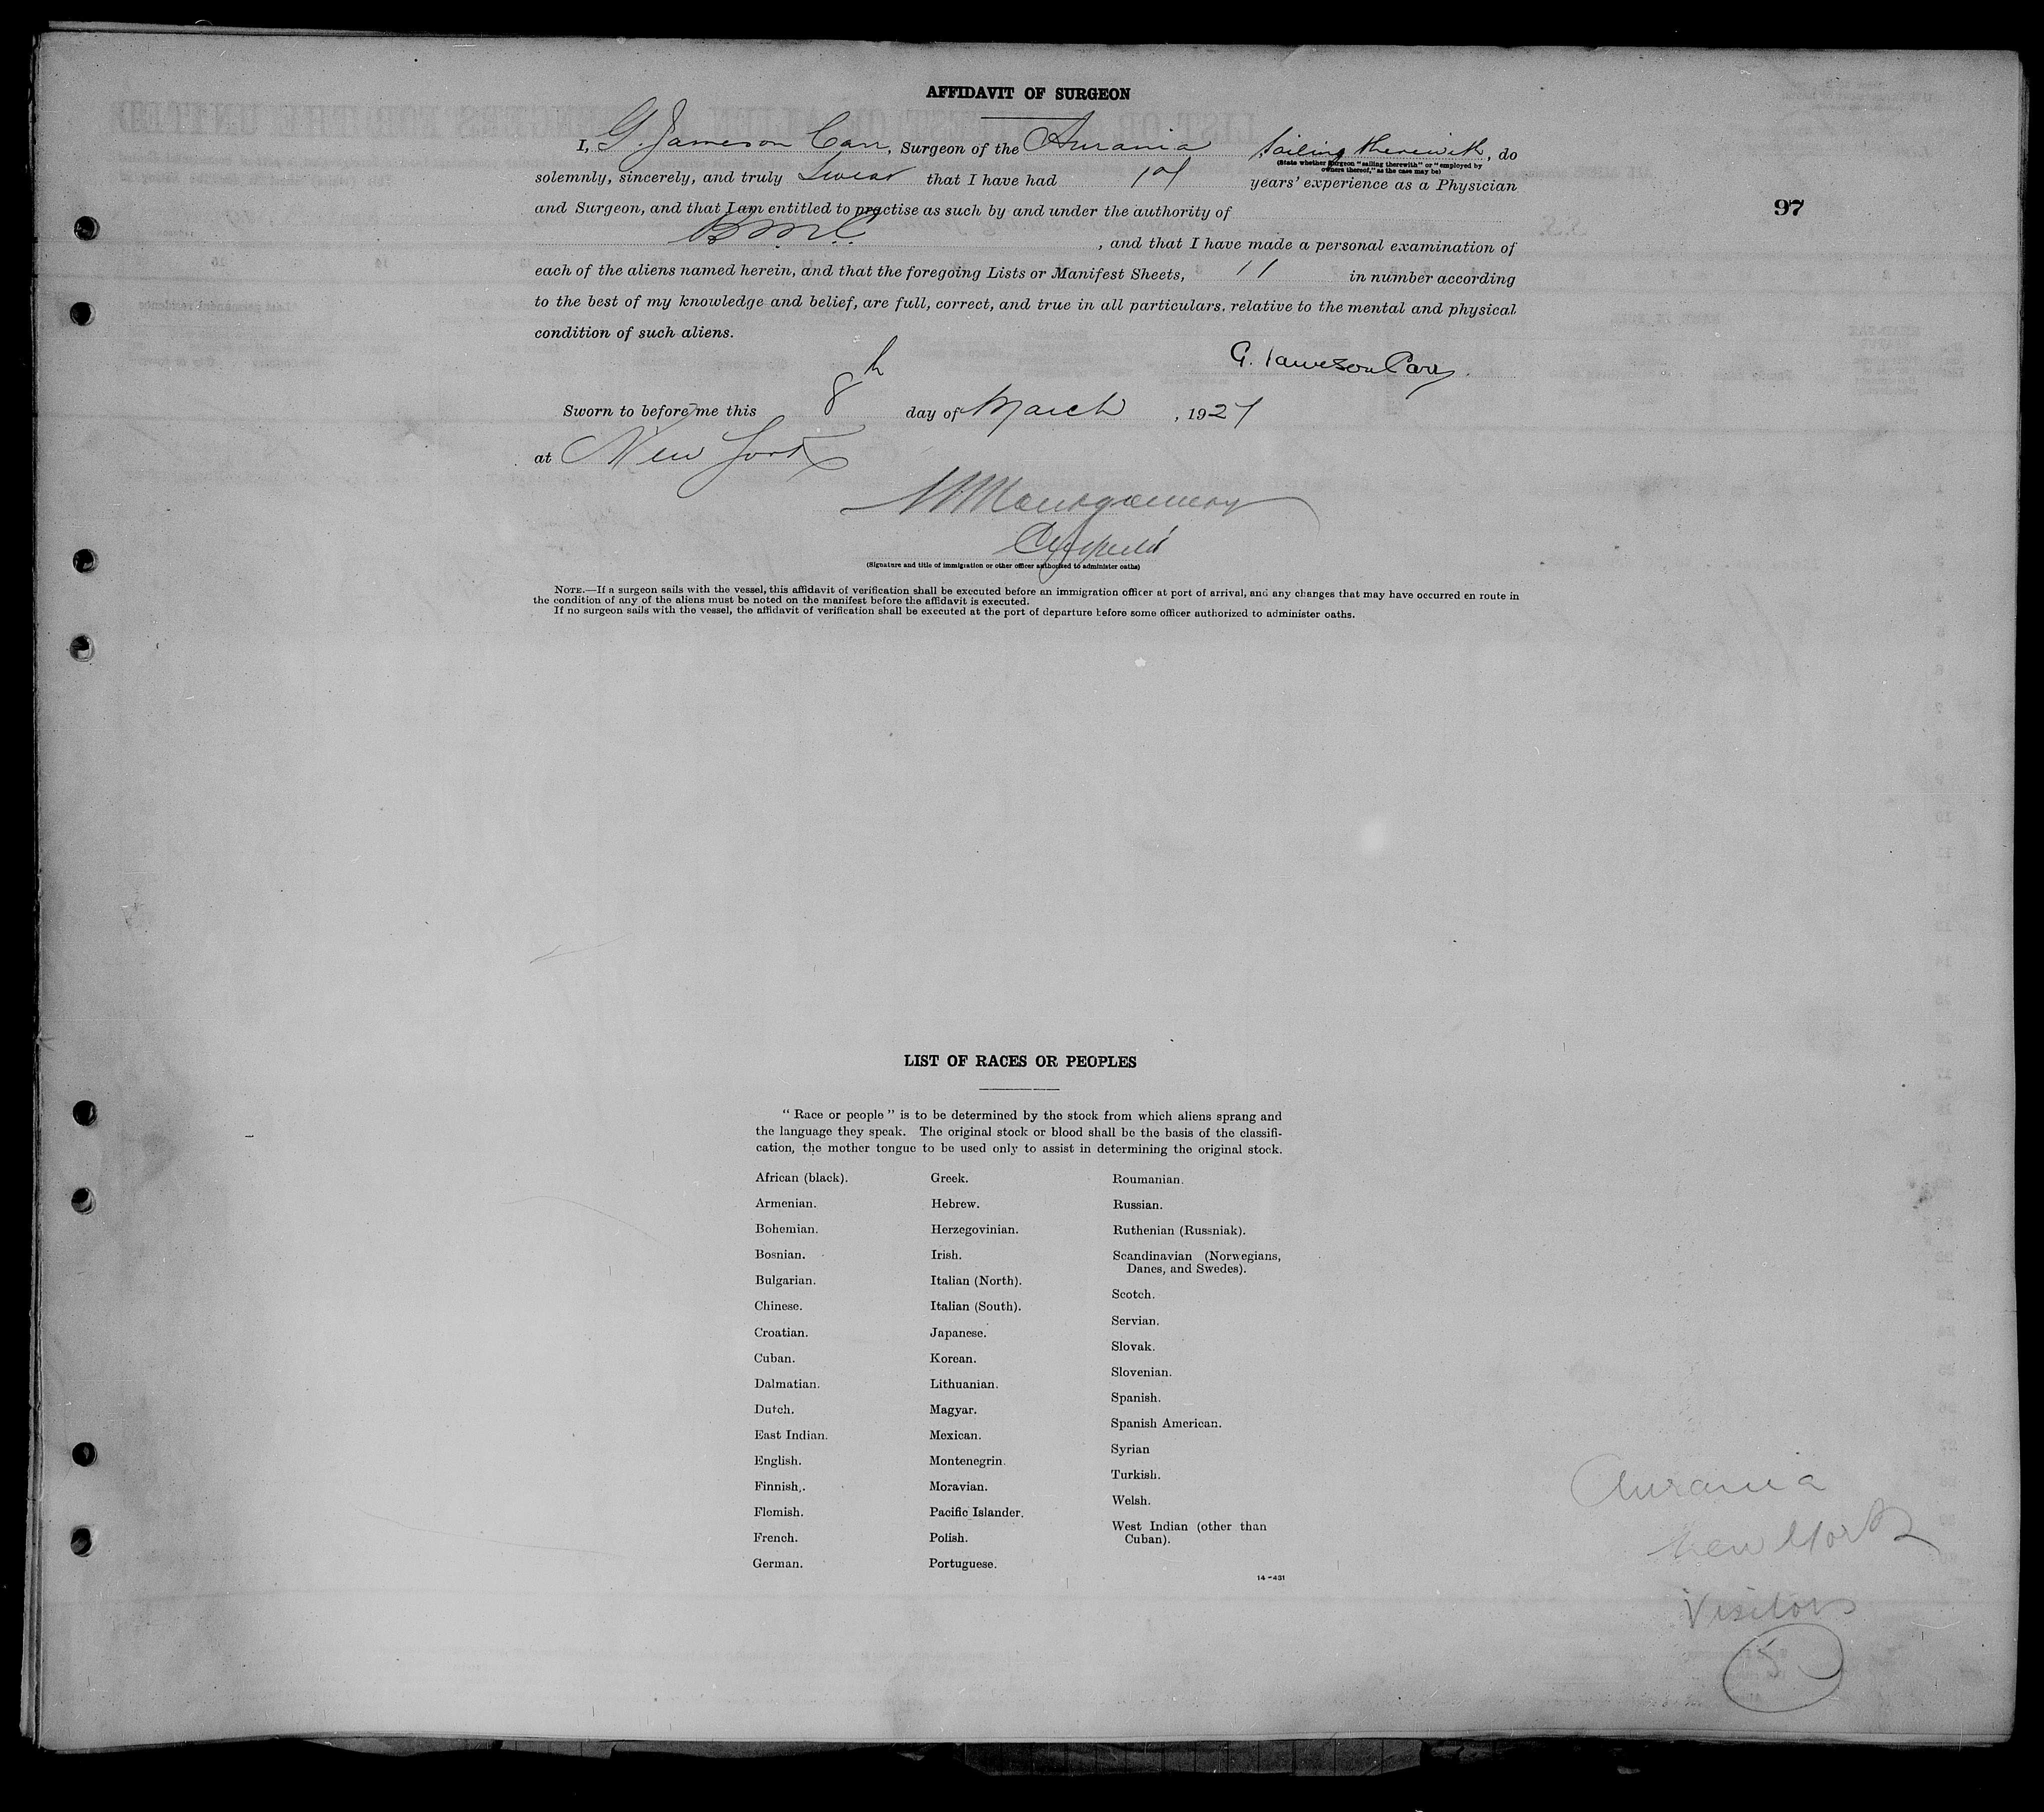 AFFIDAVIT OF SURGEON
I, G. Jameson Carr, Surgeon of the Aurania sailing therewith, do
(State whether Surgeon "sailing therewith" or "employed by
owners thereof," as the case may be)
solemnly, sincerely, and truly swear that I have had years' experience as a Physician
and Surgeon, and that I am entitled to practise as such by and under the authority of
, and that I have made a personal examination of
each of the aliens named herein, and that the foregoing Lists or Manifest Sheets, 11 in number according
to the best of my knowledge and belief, are full, correct, and true in all particulars, relative to the mental and physical
condition of such aliens.
G. Jameson Carr.
Sworn to before me this 8th day of March, 1927
at New York
Montgomery
(Signature and title of immigration or other officer authorized to administer oaths)
NOTE.—If a surgeon sails with the vessel, this affidavit of verification shall be executed before an immigration officer at port of arrival, and any changes that may have occurred en route in
the condition of any of the aliens must be noted on the manifest before the affidavit is executed.
If no surgeon sails with the vessel, the affidavit of verification shall be executed at the port of departure before some officer authorized to administer oaths.
97
LIST OF RACES OR PEOPLES
"Race or people" is to be determined by the stock from which aliens sprang and
the language they speak. The original stock or blood shall be the basis of the classifi-
cation, the mother tongue to be used only to assist in determining the original stock.
African (black).
Armenian.
Bohemian.
Bosnian.
Bulgarian.
Chinese.
Croatian.
Cuban.
Dalmatian.
Dutch.
East Indian.
English.
Finnish.
Flemish.
French.
German.
Greek.
Hebrew.
Herzegovinian.
Irish.
Italian (North).
Italian (South).
Japanese.
Korean.
Lithuanian.
Magyar.
Mexican.
Montenegrin.
Moravian.
Pacific Islander.
Polish.
Portuguese.
Roumanian.
Russian.
Ruthenian (Russniak).
Scandinavian (Norwegians,
Danes, and Swedes).
Scotch.
Servian.
Slovak.
Slovenian.
Spanish.
Spanish American.
Syrian
Turkish.
Welsh.
West Indian (other than
Cuban).
14-431
Aurania
New York
Visitors
5